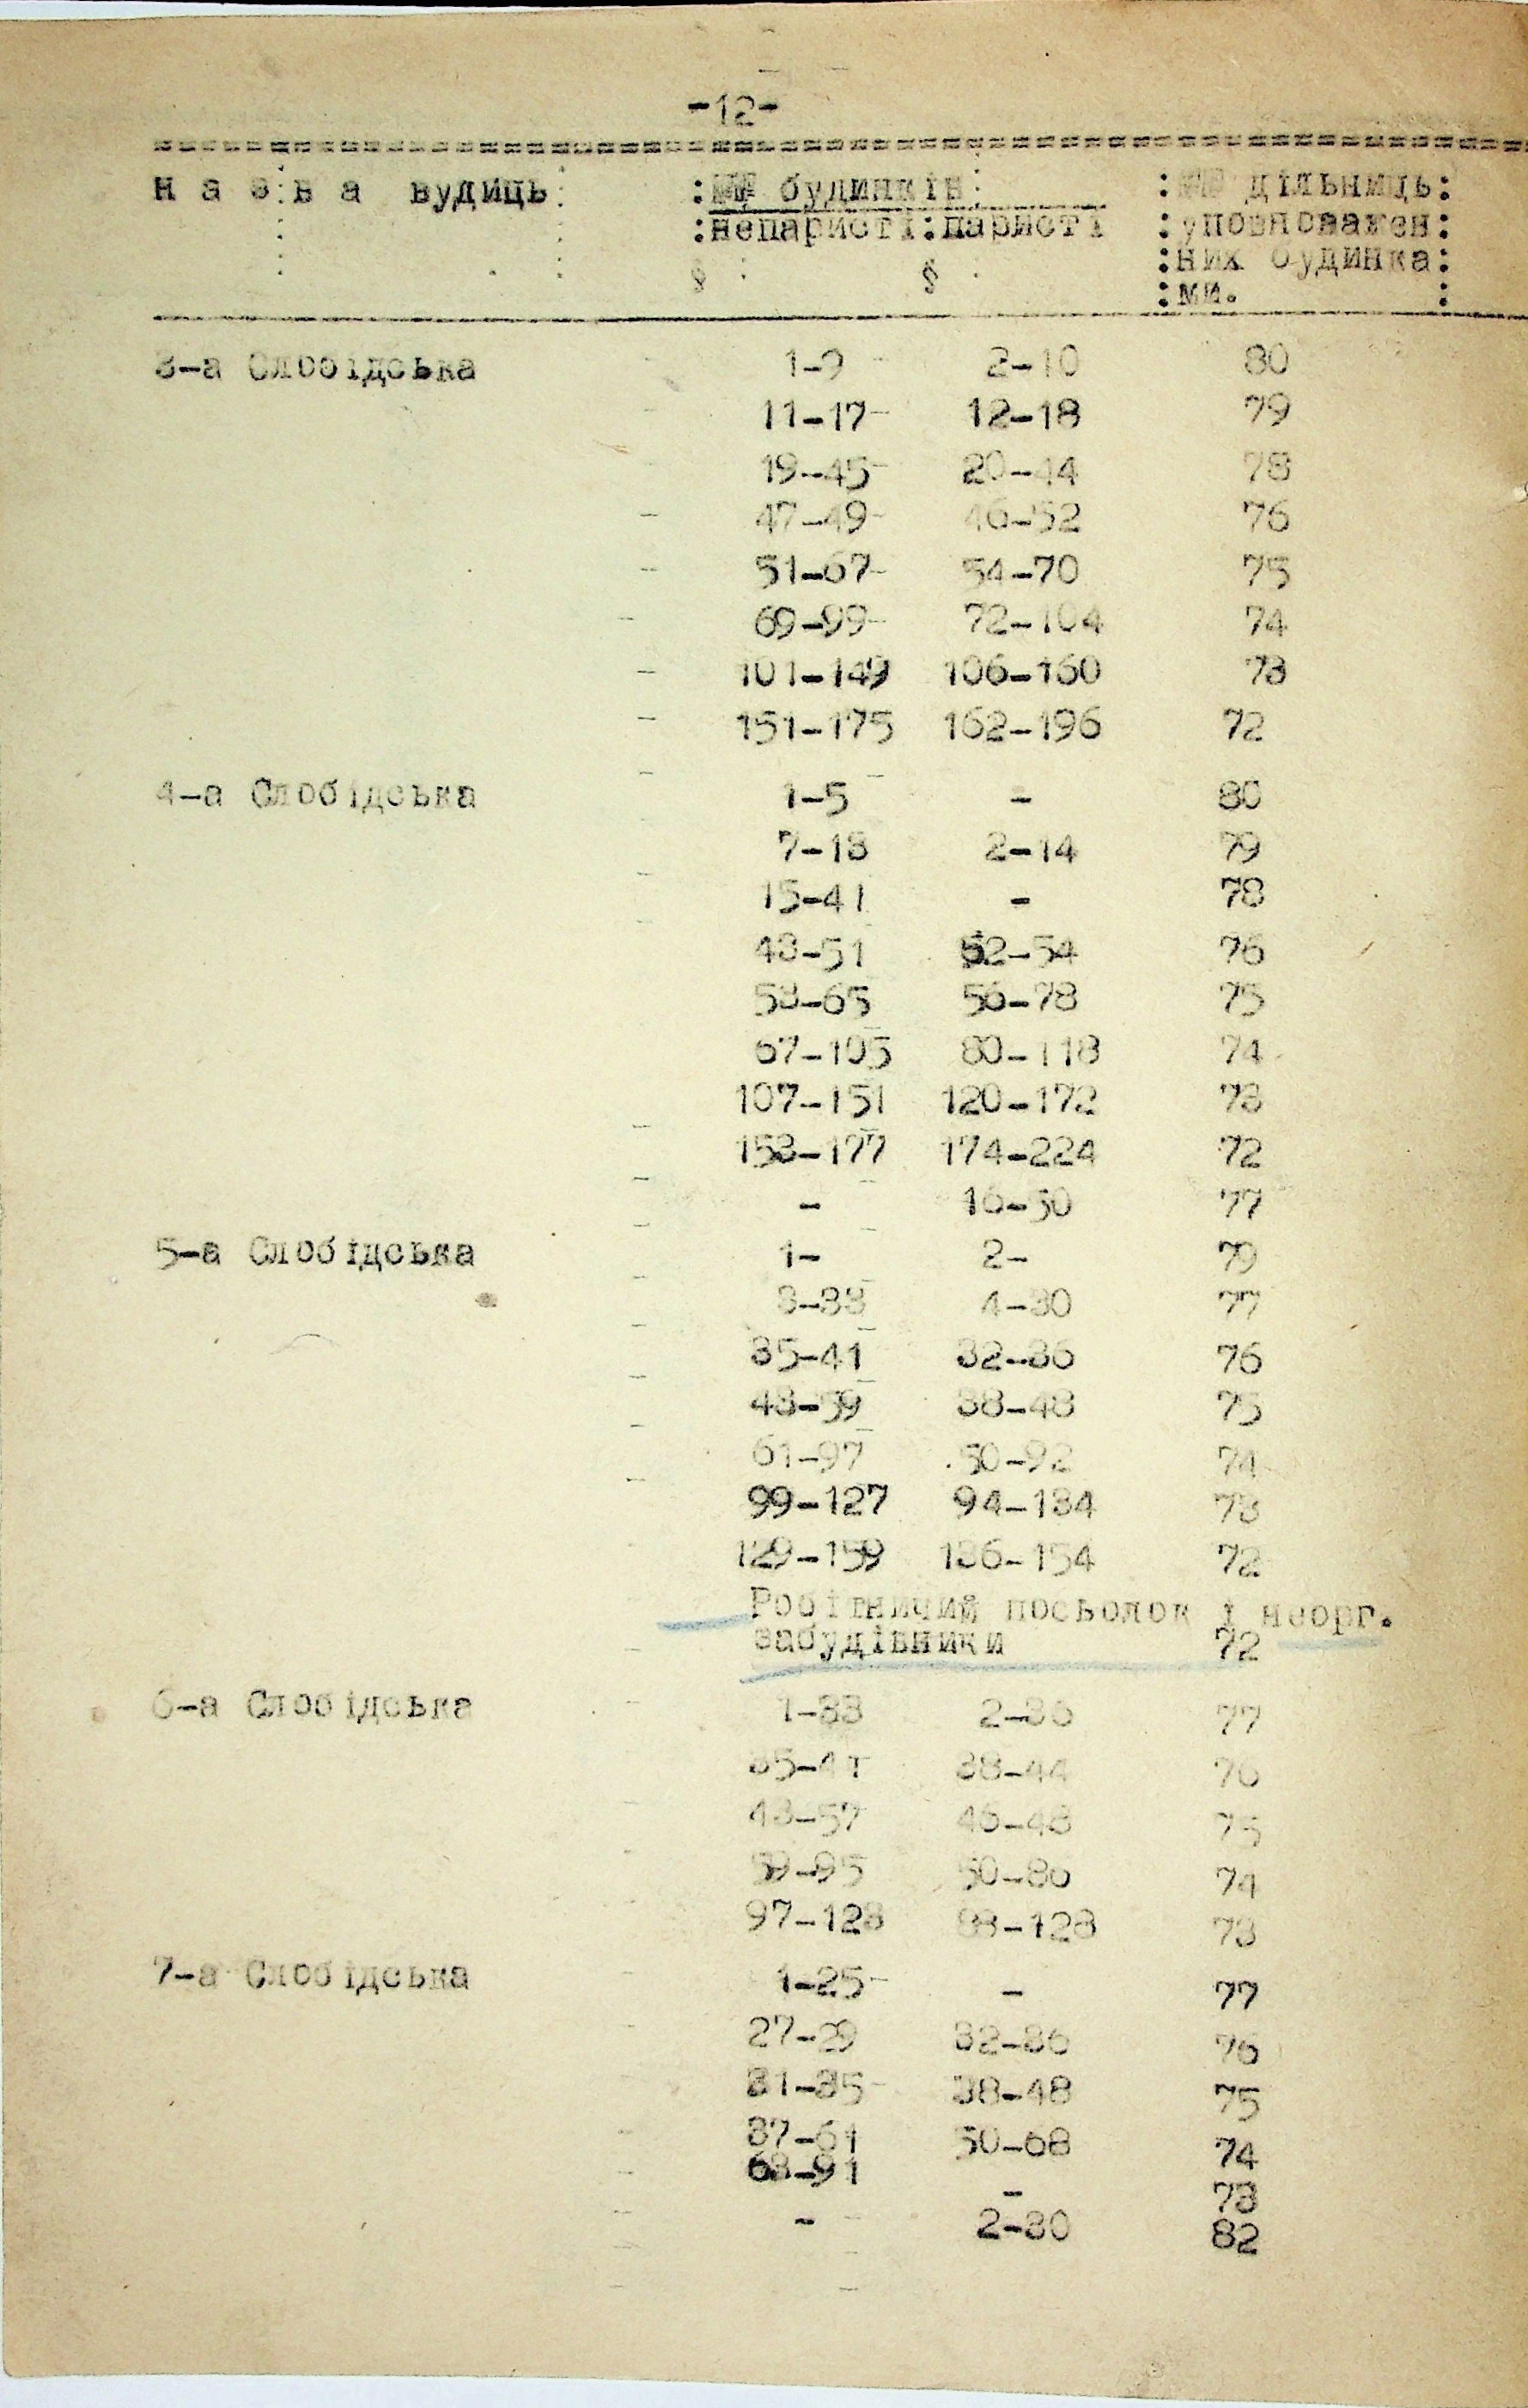 -12-
Н а з в а вудиць :№№ будинків :№№ дільниць:
:непаристі:паристі :уповноважен:
§ § :них будинка:
:ми. :
3-а Слобідська 1-9 2-10 80
11-17 12-18 79
19-45 20-44 78
47-49 46-52 76
51-67 54-70 75
69-99 72-104 74
101-149 106-160 73
151-175 162-196 72
4-а Слобідська 1-5 - 80
7-13 2-14 79
15-41 - 78
43-51 52-54 76
53-65 56-78 75
67-105 80-118 74
107-151 120-172 73
153-177 174-224 72
- 16-50 77
5-а Слобідська 1- 2- 79
3-33 4-30 77
35-41 32-36 76
43-59 38-48 75
61-97 50-92 74
99-127 94-134 73
129-159 136-154 72
Робітничий посьолок і неорг.
забудівники 72
6-а Слобідська 1-33 2-36 77
35-41 38-44 76
43-57 46-48 75
59-95 50-86 74
97-123 88-128 73
7-а Слобідська 1-25 - 77
27-29 32-36 76
31-35 38-48 75
37-61 50-68 74
63-91 - 73
- 2-30 82